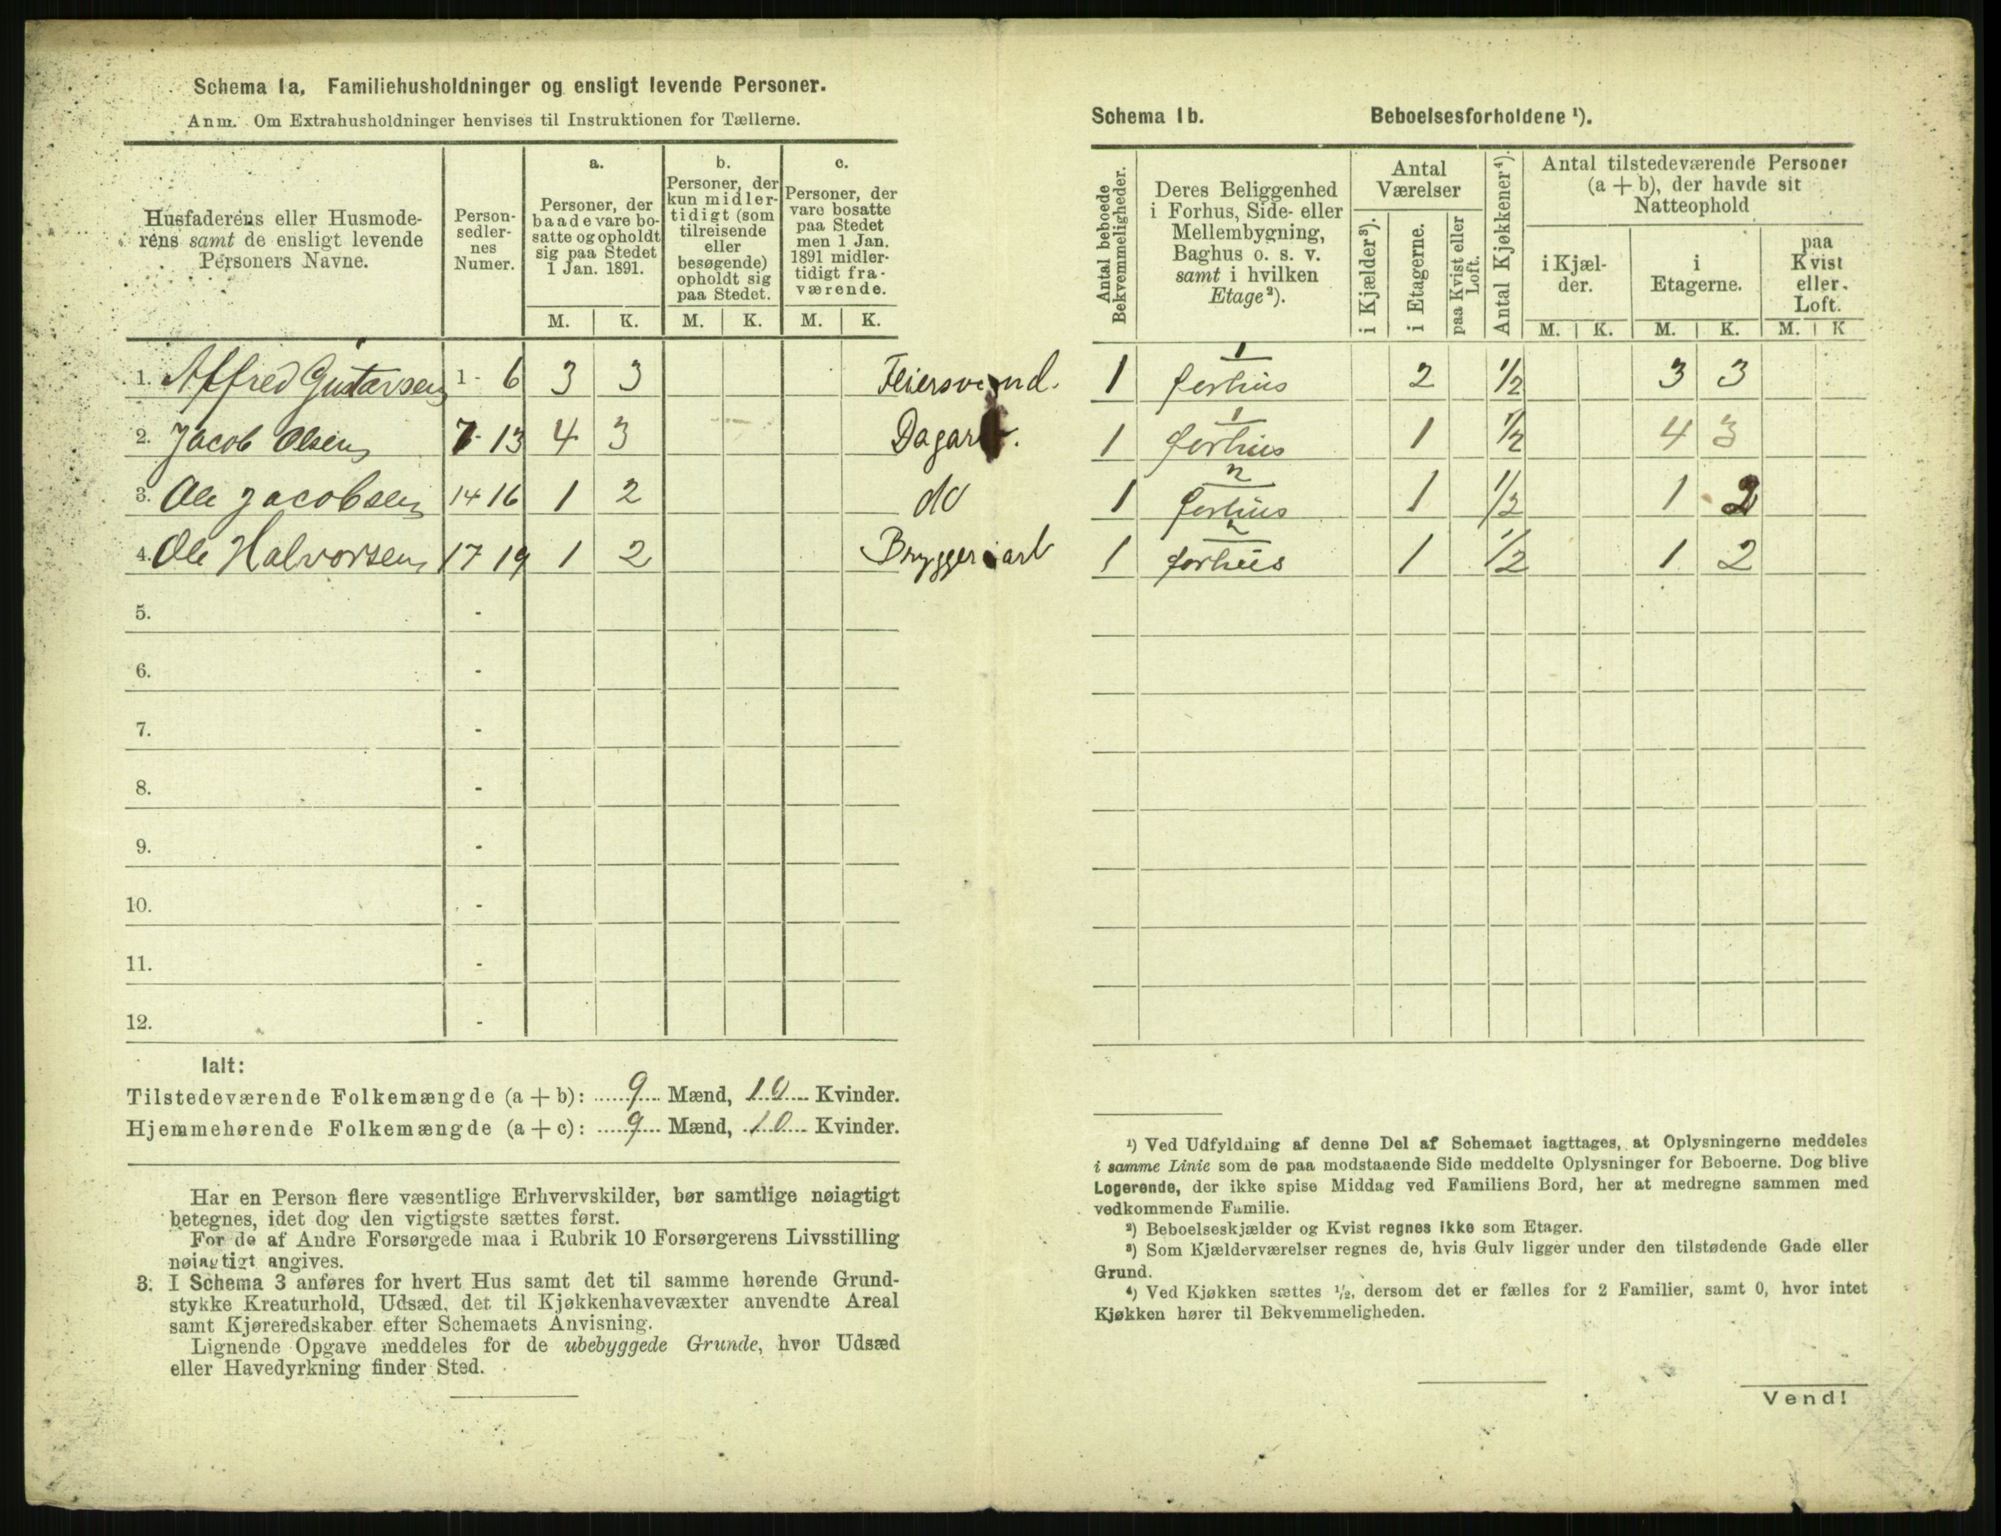 Schema 1a. Familiehusholdninger og ensligt levende Personer.
Anm. Om Extrahusholdninger henvises til Instruktionen for Tællerne.
Husfaderens eller Husmoderens samt de ensligt levende Personers Navne.
Personsedlernes Numer.
a.
Personer, der baade vare bosatte og opholdt sig paa Stedet 1 Jan. 1891.
b.
Personer, der kun midlertidigt (som tilreisende eller besøgende) opholdt sig paa Stedet.
c.
Personer, der vare bosatte paa Stedet men 1 Jan. 1891 midlertidigt fraværende.
M. K. M. K. M. K.
1. Alfred Gustavsen 1 - 6 3 3 Feiersvend.
2. Jacob Olsen 7 - 13 4 3 Dagarb.
3. Ole Jacobsen 14 16 1 2 do
4. Ole Halvorsen 17 19 1 2 Bryggeriarb
5. -
6. -
7. -
8. -
9. -
10. -
11. -
12. -
Ialt:
Tilstedeværende Folkemængde (a + b): 9 Mænd, 10 Kvinder.
Hjemmehørende Folkemængde (a + c): 9 Mænd, 10 Kvinder.
Har en Person flere væsentlige Erhvervskilder, bør samtlige nøiagtigt
betegnes, idet dog den vigtigste sættes først.
For de af Andre Forsørgede maa i Rubrik 10 Forsørgerens Livsstilling
nøiagtigt angives.
3. I Schema 3 anføres for hvert Hus samt det til samme hørende Grund-
stykke Kreaturhold, Udsæd, det til Kjøkkenhavevæxter anvendte Areal
samt Kjøreredskaber efter Schemaets Anvisning.
Lignende Opgave meddeles for de ubebyggede Grunde, hvor Udsæd
eller Havedyrkning finder Sted.
Schema 1b. Beboelsesforholdene ¹).
Antal beboede Bekvemmeligheder.
Deres Beliggenhed i Forhus, Side- eller Mellembygning, Baghus o. s. v. samt i hvilken Etage²).
Antal Værelser
i Kjælder³).
i Etagerne.
paa Kvist eller Loft.
Antal Kjøkkener⁴).
Antal tilstedeværende Personer (a + b), der havde sit Natteophold
i Kjælder.
i Etagerne.
paa Kvist eller Loft.
M. K. M. K. M. K
1 1 forhus 2 ½ 3 3
1 1 forhus 1 ½ 4 3
1 2 forhus 1 ½ 1 2
1 2 forhus 1 ½ 1 2
¹) Ved Udfyldning af denne Del af Schemaet iagttages, at Oplysningerne meddeles
i samme Linie som de paa modstaaende Side meddelte Oplysninger for Beboerne. Dog blive
Logerende, der ikke spise Middag ved Familiens Bord, her at medregne sammen med
vedkommende Familie.
²) Beboelseskjælder og Kvist regnes ikke som Etager.
³) Som Kjælderværelser regnes de, hvis Gulv ligger under den tilstødende Gade eller
Grund.
⁴) Ved Kjøkken sættes ½, dersom det er fælles for 2 Familier, samt 0, hvor intet
Kjøkken hører til Bekvemmeligheden.
Vend!